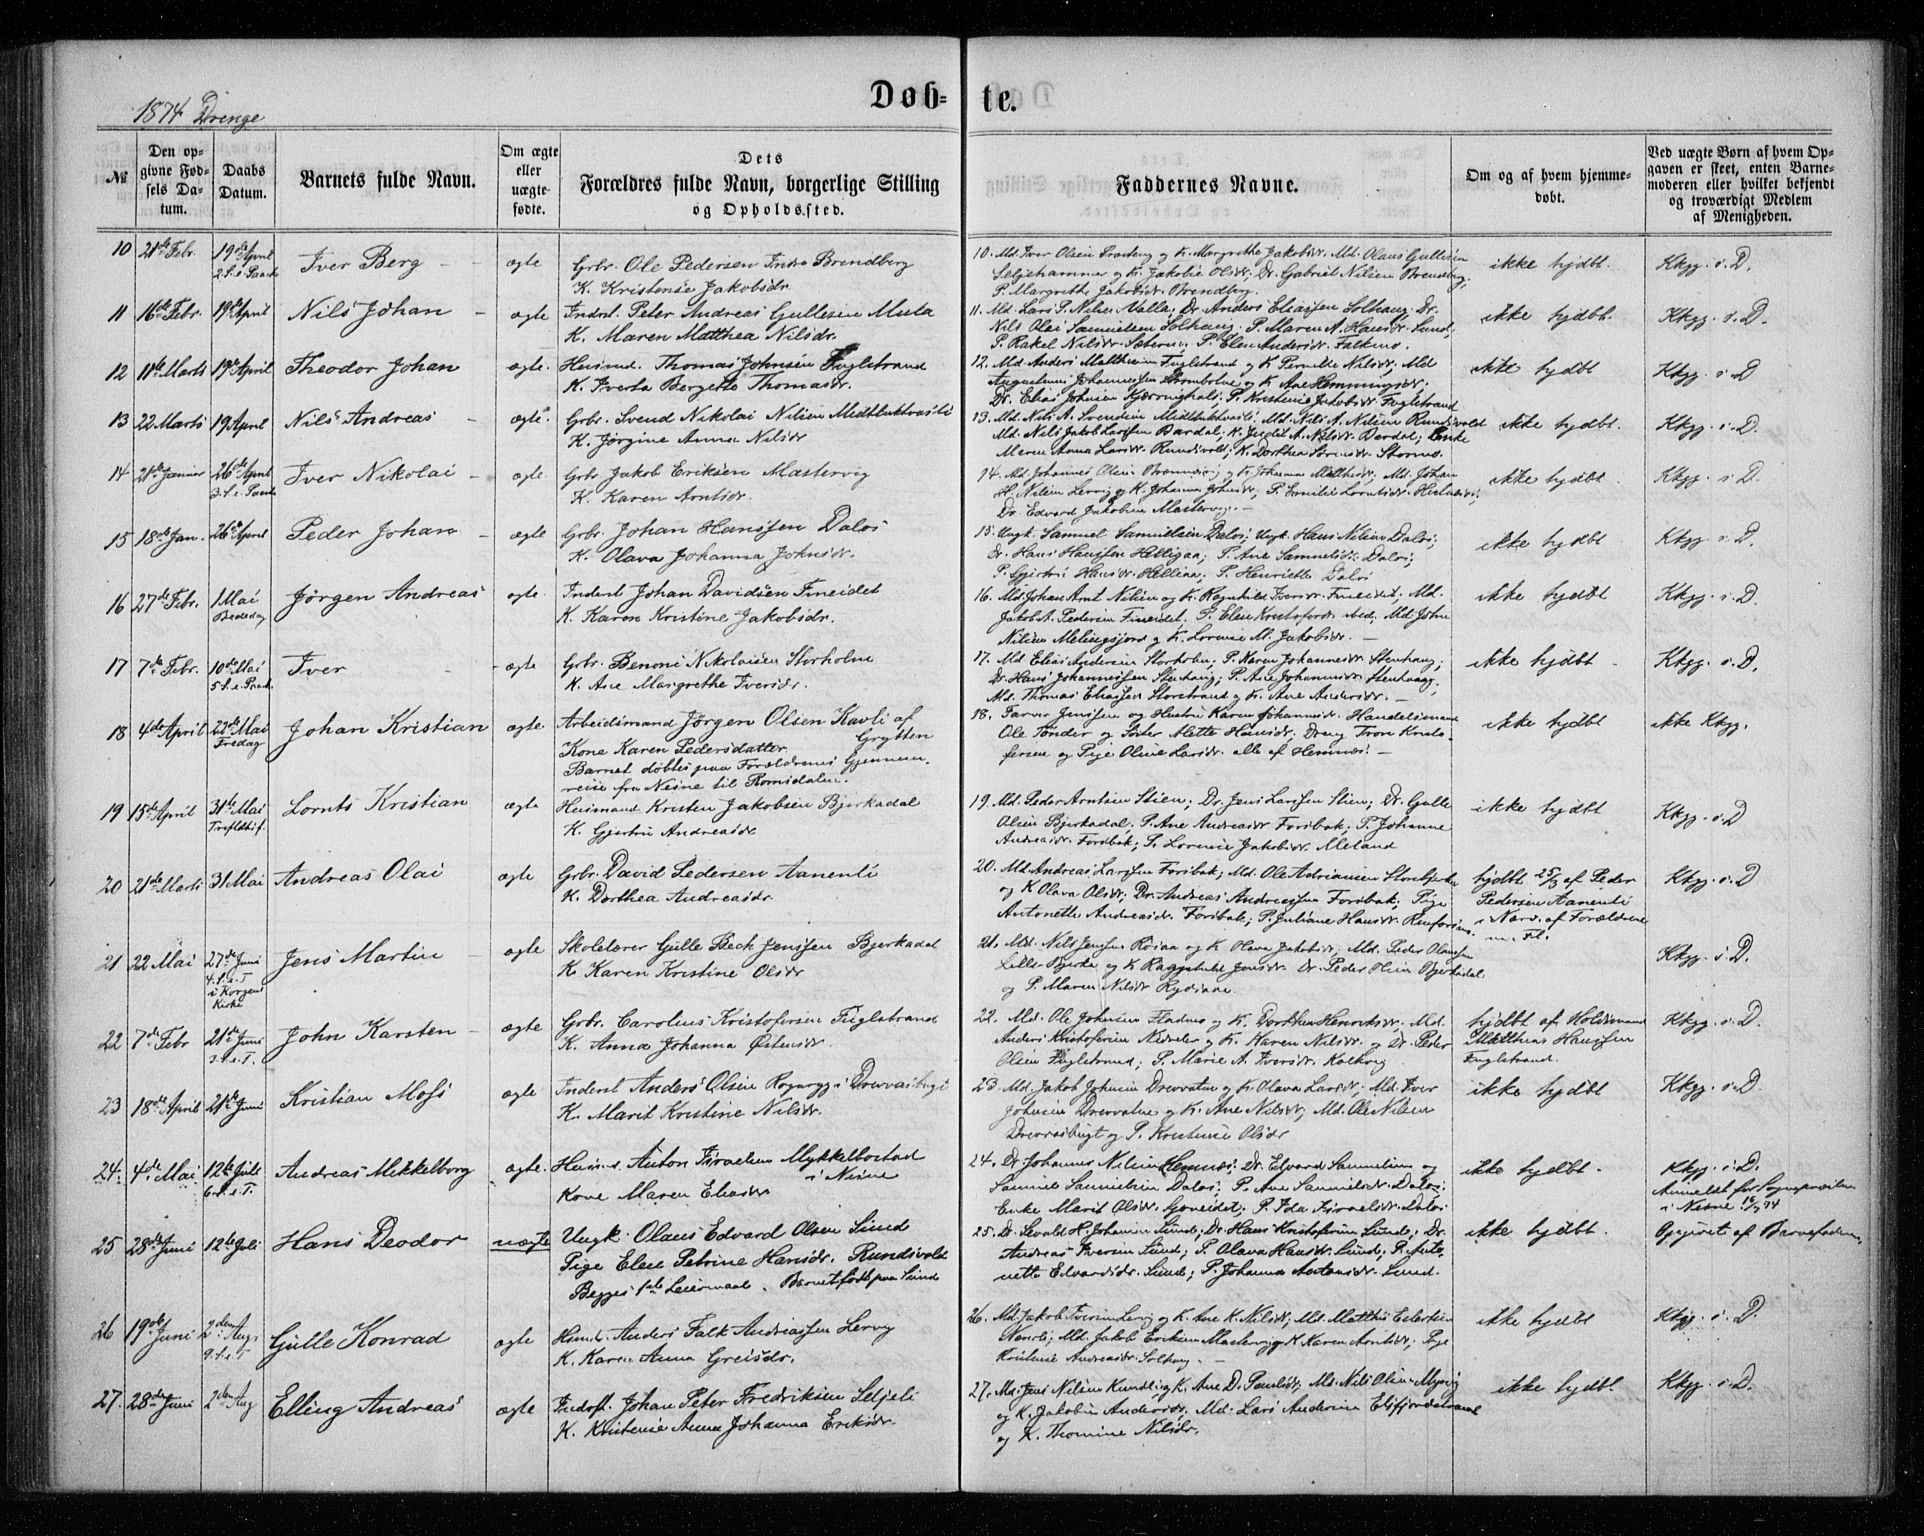 Døb-te.
1874 Drenge
№
Den opgivne Fødsels Datum.
Daabs Datum.
Barnets fulde Navn.
Om ægte eller uægte-fødte.
Dets Forældres fulde Navn, borgerlige Stilling og Opholdssted.
Faddernes Navne.
Om og af hvem hjemmedøbt.
Ved uægte Børn af hvem Opgaven er skeet, enten Barnemoderen eller hvilket bekjendt og troværdigt Medlem af Menigheden.
10 21de Febr. 19de April Iver Berg ægte Grbr. Ole Pedersen Indre Brendberg
K. Kristense Jakobsdr.
10. Md. Iver Olsen K. Margrethe Jakobsdr. Md. Olaus Gullesen
K. Jakobie Olsdr. Dr. Gabriel Nilsen Brendberg,
P. Margrethe Jakobsdr. Brendberg.
ikke hjdbt. Kkgg. s. D.
11 16de Febr. 19de April Nils Johan ægte Inderst Peter Andreas Gullesen Mula
K. Maren Matthea Nilsdr.
11. Md. Lars P. Nilsen Valla; Dr. Anders Eliassen Solhaug; Dr.
Nils Olai Samuelsen Solhaug. P. Maren A. Hansdr. Lund;
P. Rakel Nilsdr. P. Elen Andersdr. Falkmo.
ikke hjdbt. Kkgg. s. D.
12 11te Marts 19de April Theodor Johan ægte. Husmd. Thomas Johnsen Fuglstrand
K. Iverta Bergette Thomasdr.
12. Md. Anders Mathisen Fuglstrand og K. Pernille Nilsdr; Md.
Augustinus Johannessen og K. Ane Hemmingsdr.
Dr. Elias Johnsen P. Kristense Jakobsdr Fuglstrand
ikke hjdbt Kkgg. s. D
13 22 Marts 19 April Nils Andreas ægte. Grbr. Svend Nikolai Nilsen
K. Jørgine Anna Nilsdr
13. Md. Nils A. Svendsen Md. Nils A. Nilsen Rundsvold
Md. Nils Jakob Larssen Bardal; K. Judit A. Nilsdr. Bardal; Enke
Maren Anna Larsdr. Rundsvold; K. Dorthea
ikke hjdbt. Kkgg. s. D.
14 21de Januar 26de April Iver Nikolai ægte. Grbr Jakob Eriksen Mastervig
K. Karen Arntsdr.
14. Md. Johannes Olsen K. Johanna Md. Johan
H. Nilsen Lervig og K. Johanna Johnsdr; P. Emilie
Dr. Edvard Jakobsen Mastervig.
ikke hjdbt. Kkgg. s. D.
15 18de Jan. 26de April Peder Johan ægte Grbr. Johan Hanssen Dalos
K. Olava Johanna Johnsdr.
15. Ungk. Samuel Samuelsen Dalos; Ungk. Hans Nilsen Dalos;
Dr. Hans Hanssen P. Ane Samuelsdr. Dalos;
P. Hansdr. P. Henriette Dalos
ikke hjdbt Kkgg. s. D.
16 27de Febr. 1 Mai Bededag Jørgen Andreas ægte. Inderst Johan Davidsen Fineidet
K. Karen Kristine Jakobsdr.
16. Md. Johan Arnt Nilsen og K. Ragnhild Iversdr. Fineidet; Md.
Jakob A. Pedersen Fineidet. P. Elen Kristofersdr. ibid. Md. John
Nilsen Melingsfjord og K. Lorense M. Jakobsdr.
ikke hjdbt Kkgg. s. D.
17 7de Febr. 10de Mai Iver ægte Grbr. Benoni Nikolaisen Storholm
K. Ane Margrethe Iversdr.
17. Md Elias Andersen Storholm; P. Karen Johannesdr. Stenhaug;
Dr. Hans Johannessen Stenhaug; P. Ane Johannesdr Stenhaug;
Md. Thomas Eliassen Storstrand og K. Ane Andersdr.
ikke hjdbt Kkgg. s. D.
18 4de April 22de Mai Fredag Johan Kristian ægte Arbeidsmand Jörgen Olsen Kavli af Grytten
Kone Karen Pedersdatter.
Barnet døbtes paa Forældrenes Gjennem-
reise fra Nesne til Romsdalen.
18. Farver Jenssen og Hustru Karen Johannesdr. Handelsmand
Ole Tønder og Søster Alette Hansdr; Dreng Tron Kristo-
fersen og Pige Oline Larsdr. alle af Hemnæs.
ikke hjdbt ikke Kkgg.
19 15de April 31te Mai Lornts Kristian ægte Husmand Kristen Jakobsen Bjerkadal
K. Gjertru Andreasdr.
19. Md. Peder Arntsen Stien; Dr. Jens Larssen Stien; Dr. Gulle
Olsen Bjerkadal; P. Ane Andreasdr Forsbak; P. Johanne
Andreasdr. Forsbak; P. Lorense Jakobsdr. Meland
ikke hjdbt Kkgg. s. D
20 21de Marts 31 Mai Andreas Olai ægte Grbr. David Pedersen Aanenli
K. Dorthea Andreasdr.
20. Md. Andreas Larssen Forsbak; Md. Ole Adriansen Storebjerka
og K Olava Olsdr; Dr. Andreas Andreassen Forsbak; Pige
Antonette Andreasdr. Forsbak; P. Juliane Hansdr.
hjdbt 25/3 af Peder
Pedersen Aanenli
i Nærv. af Forældrene
Kkgg. s. D
21 22 Mai 27de Juni 4. S. e. T i Korgens Kirke Jens Martin ægte Skolelærer Gulle Beck Jenssen Bjerkadal
K. Karen Kristine Olsdr
21. Md. Nils Jenssen Røsaa og K. Olava Jakobsdr. Md. Peder Olaussen
Lille Bjerka og K. Ragnhild Jensdr. Dr. Peder Hein Bjerkadal
og P. Maren Nilsdr Rydsaa.
Kkgg. s. D.
22 7de Febr 21de Juni 3. S. e. T. John Karsten ægte Grbr. Carolius Kristofersen Fuglstrand
K. Anna Johanna Østensdr.
22. Md. Ole Johnsen og K. Dorthea Henriksdr. Md.
Anders Kristofersen og K. Karen Nilsdr. og Dr. Peder
Olsen Fuglstrand; P. Marie A. Iversdr.
hjdbt af Holdsmand
Matthias Hanssen
Fuglstrand.
Kkgg. s. D.
23 18de April 21de Juni Kristian Moss ægte Inderst Anders Olsen i Drevvasbugt
K. Marit Kristine Nilsdr.
23. Md. Jakob Johnsen Drevvatne og K. Olava Larsdr; Md. Iver
Johnsen Drevvatne og K. Ane Nilsdr; Md. Ole Nilsen
Drevvasbugt og P. Kristense Olsdr
ikke hjdbt Kkgg. s. D.
24. 4de Mai 12te Juli 6. S. e. T. Andreas Mikkelborg ægte. Husm. Anton Israelsen Mykkelbostad
i Nesne
Kone Maren Eliasdr
24. Dr. Johannes Nilsen Hemnæs; Dr. Edvard Samuelsen og
Samuel Samuelsen Dalos; P. Ane Samuelsdr. Dalos;
Enke Marit Olsdr. P. Ida Israelsdr. Dalos
ikke hjdbt. Kkgg. s. D.
Anmeldt for Sognepræsten
i Nesne 16/7 74
25 28de Juni 12te Juli Hans Deodor uægte Ungk. Olaus Edvard Olsen Sund
Pige Elen Petrine Hansdr. Rundsvold
Begges 1ste Leiermaal. Barnet født paa Sund
25. Dr. Sevald H. Johansen Sund; Dr. Hans Kristofersen Sund; Dr.
Andreas Iversen Sund; P. Olava Hansdr. Sund; P. Anto-
nette Edvardsdr. Sund; P. Johanna Antonsdr. Sund.
ikke hjdbt. Opgivet af Barnefaderen
26 19de Juni 2den Aug. 9. S. e. T Gulle Konrad ægte Husmd. Anders Falk Andreassen Lervig
K. Karen Anna Greisdr.
26. Md. Jakob Iversen Lervig og K. Ane K. Nilsdr; Md. Matthis
Md. Jakob Eriksen Mastervig og K. Karen Arntsdr; Pige
Kristense Andreasdr. Solhaug.
ikke hjdbt Kkgg. s. D.
27. 28de Juni 2den Aug Elling Andreas ægte Inderst. Johan Peter Fredriksen Seljeli
K. Kristense Anna Johanna Eriksdr.
27. Md. Jens Nilsen K. Ane D. Paulsdr; Md. Nils Olsen
og K. Jakobine Andersdr. Md. Lars Andersen Elsfjordstrand
og K. Thomine Nilsdr.
ikke hjdbt. Kkgg. s. D.